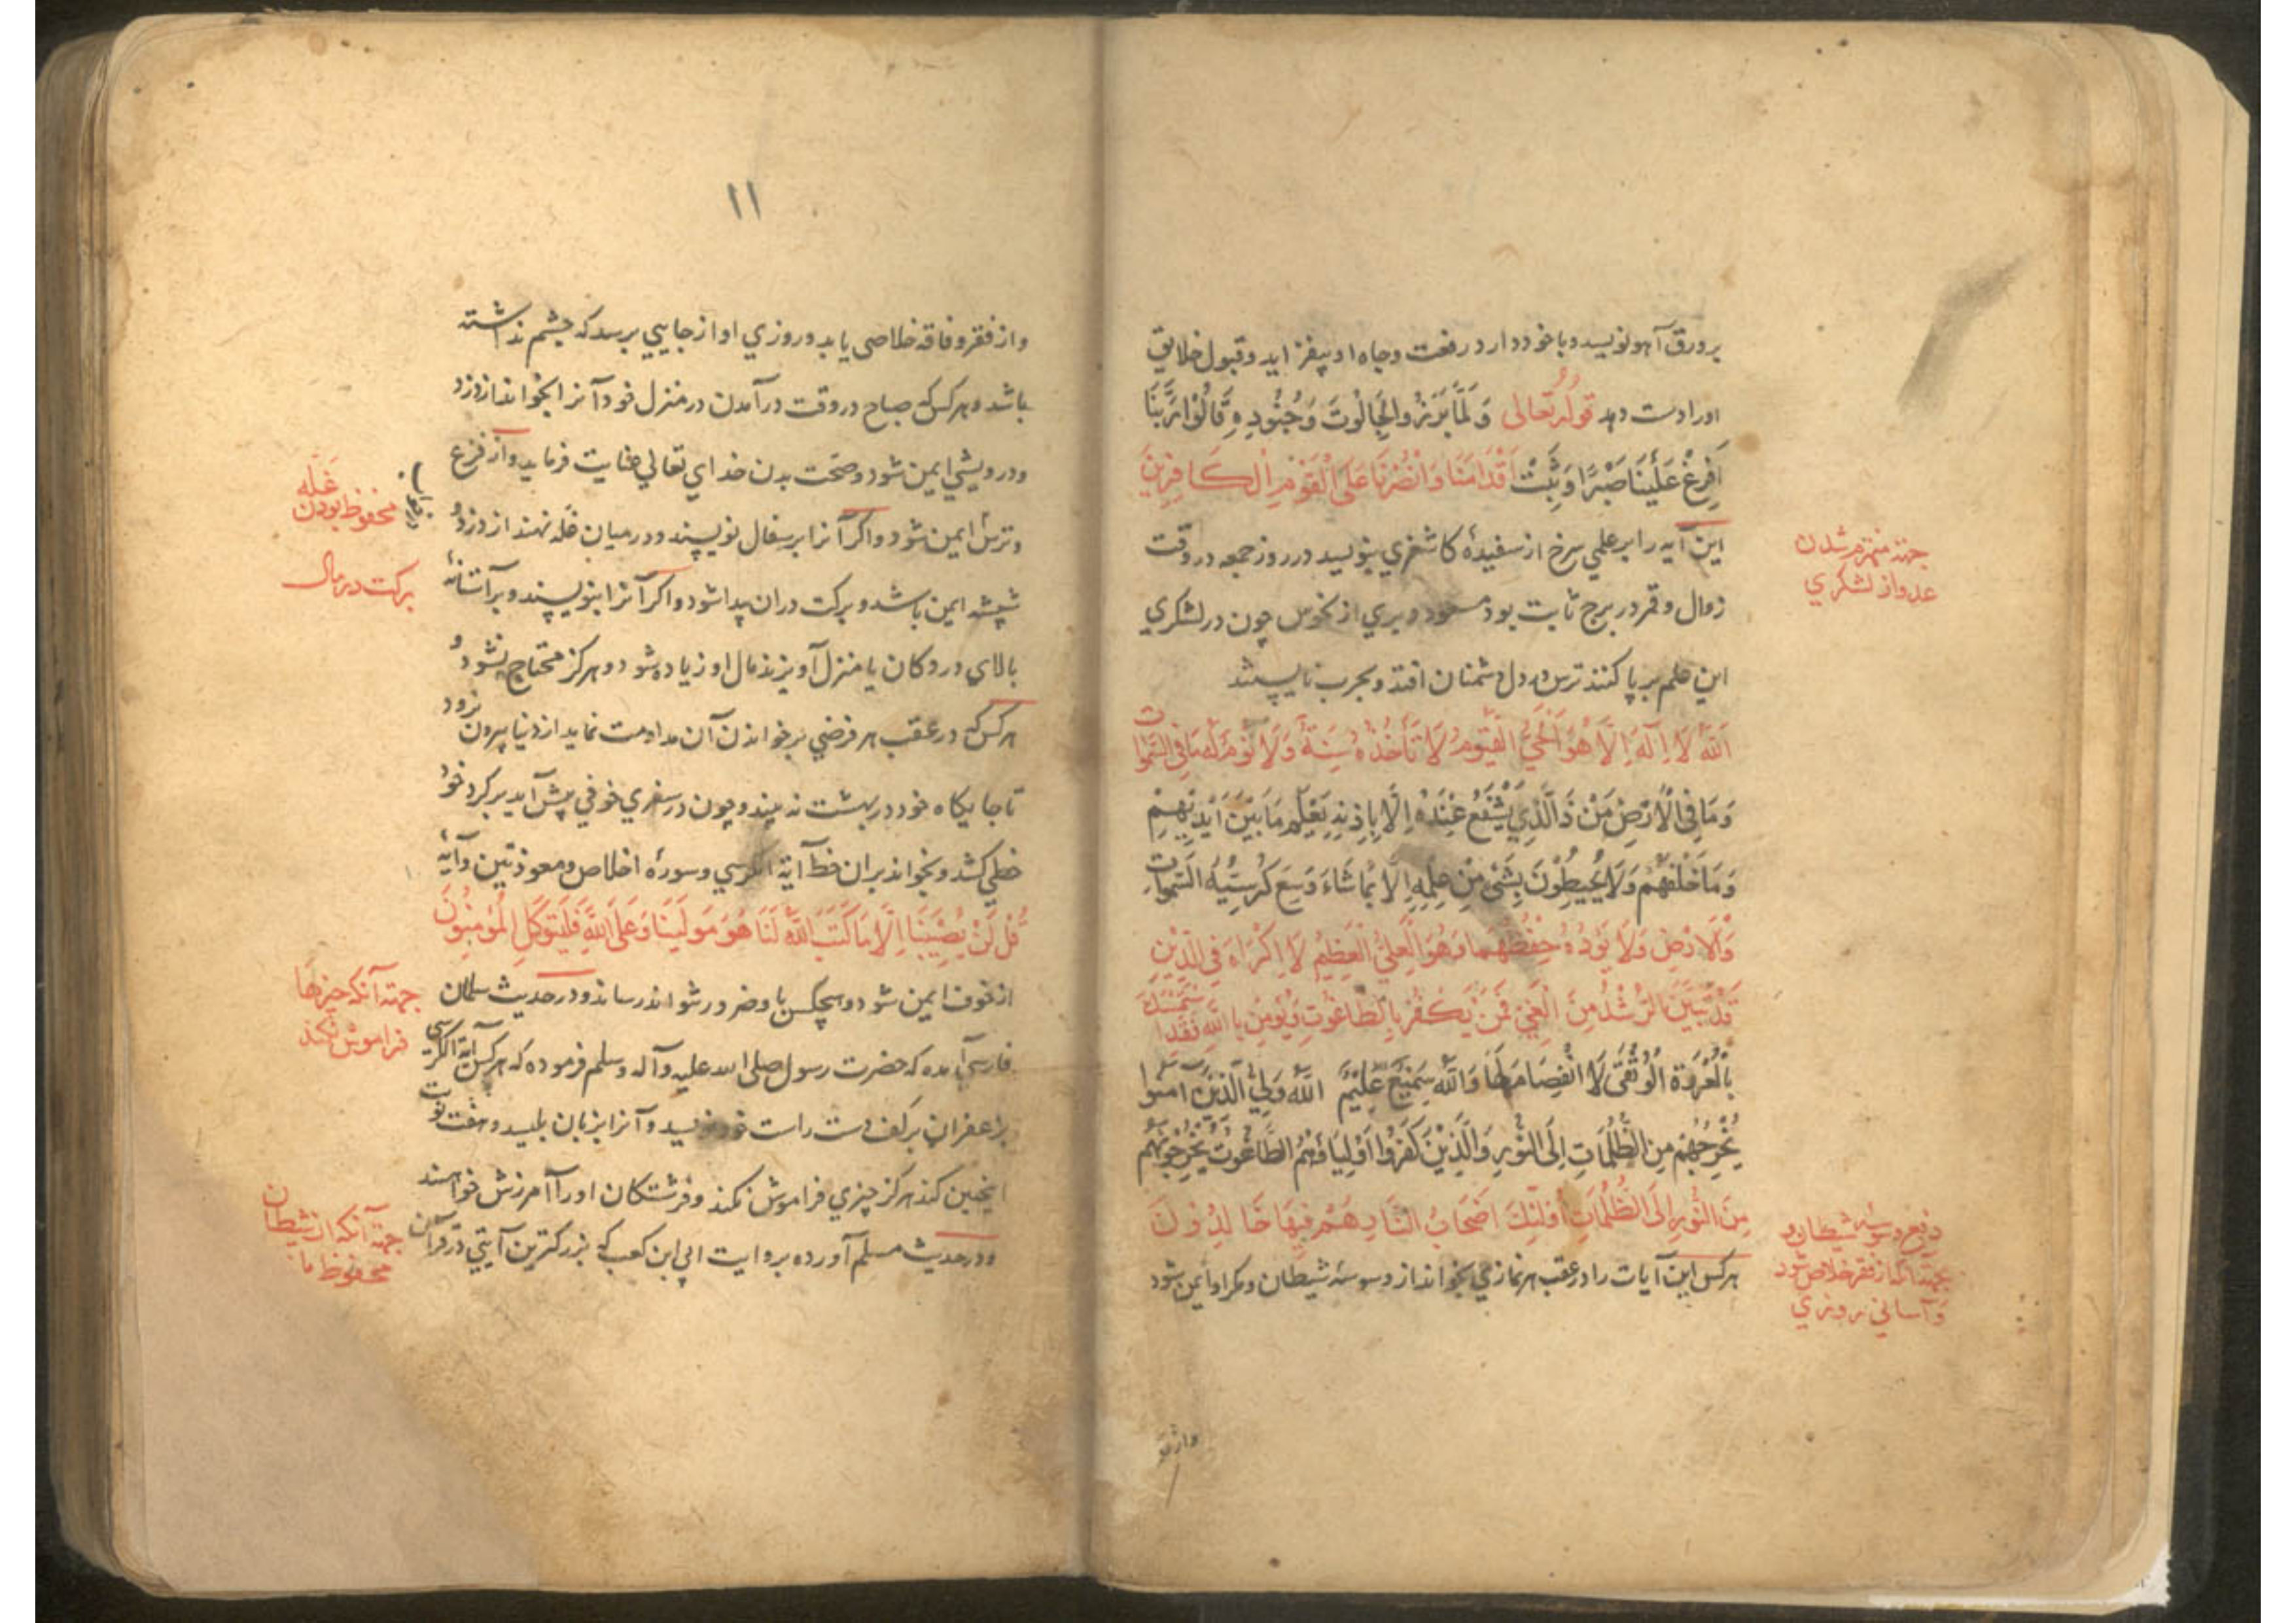 بر ورق آهو نویسد و با خود دارد رفعت و جاه او بیفزاید و قبول خلایق
اورا دست دهد قوله تعالی وَلَمَّا بَرَزُوا لِجَالُوتَ وَجُنُودِهِ قَالُوا رَبَّنَا
اَفْرِغْ عَلَيْنَا صَبْرًا وَثَبِّتْ اَقْدَامَنَا وَانْصُرْنَا عَلَى الْقَوْمِ الْكَافِرِينَ
این آیه را بر علمی سرخ از سفیدهٔ کاشغری بنویسد در روز جمعه در وقت
زوال و قمر در برج ثابت بود مسعود و بری از نحوس چون در لشکری
این علم بر پا کنند ترس در دل دشمنان افتد و بحرب نایستند
اَللّٰهُ لَا اِلٰهَ اِلَّا هُوَ الْحَيُّ الْقَيُّومُ لَا تَأْخُذُهُ سِنَةٌ وَلَا نَوْمٌ لَهُ مَا فِي السَّمٰوَات
وَمَا فِي الْاَرْضِ مَنْ ذَا الَّذِي يَشْفَعُ عِنْدَهُ اِلَّا بِاِذْنِهِ يَعْلَمُ مَا بَيْنَ اَيْدِيْهِمْ
وَمَا خَلْفَهُمْ وَلَا يُحِيطُوْنَ بِشَيْءٍ مِنْ عِلْمِهِ اِلَّا بِمَا شَاءَ وَسِعَ كُرْسِيُّهُ السَّمٰوَاتِ
وَالْاَرْضَ وَلَا يَؤُدُهُ حِفْظُهُمَا وَهُوَ الْعَلِيُّ الْعَظِيمُ لَا اِكْرَاهَ فِي الدِّيْنِ
قَدْ تَبَيَّنَ الرُّشْدُ مِنَ الْغَيِّ فَمَنْ يَكْفُرْ بِالطَّاغُوتِ وَيُؤْمِنْ بِاللّٰهِ فَقَدِ اسْتَمْسَكَ
بِالْعُرْوَةِ الْوُثْقٰى لَا انْفِصَامَ لَهَا وَاللّٰهُ سَمِيعٌ عَلِيْمٌ اَللّٰهُ وَلِيُّ الَّذِيْنَ اٰمَنُوا
يُخْرِجُهُمْ مِنَ الظُّلُمَاتِ اِلَى النُّوْرِ وَالَّذِيْنَ كَفَرُوا اَوْلِيَاؤُهُمُ الطَّاغُوتُ يُخْرِجُونَهُمْ
مِنَ النُّوْرِ اِلَى الظُّلُمَاتِ اُولٰئِكَ اَصْحَابُ النَّارِ هُمْ فِيْهَا خَالِدُوْنَ
هر کس این آیات را در عقب هر نمازی بخواند از وسوسهٔ شیطان و مکر او ایمن شود
جهة منهزم شدن
عدو از لشکری
دفع وسوسهٔ شیطان و
بجهة آنکه از فقر خلاص شود
و آسانی روزی
واز فقر
۱۱
واز فقر و فاقه خلاصی یابد و روزی او از جایی برسد که چشم نداشته
باشد و هر کس که صباح در وقت در آمدن در منزل خود آنرا بخواند از دزد
و درویشی ایمن شود و صحت بدن خدای تعالی عنایت فرماید و از فزع
و ترس ایمن شود و اگر آنرا بر سفال نویسند و در میان غله نهند از دزد و
شپشه ایمن باشد و برکت دران پیدا شود و اگر آنرا بنویسند و بر آستانهٔ
بالای در دکان یا منزل آویزند مال او زیاده شود و هرگز محتاج نشود و
هر کس که در عقب هر فرضی بر خواندن آن مداومت نماید از دنیا بیرون نرود
تا جایگاه خود در بهشت نه بیند و چون در سفری خوفی پیش آید بر گرد خود
خطی کشد و بخواند بران خط آیة الکرسی و سورهٔ اخلاص و معوذتین و آیهٔ
قُلْ لَنْ يُصِيْبَنَا اِلَّا مَا كَتَبَ اللّٰهُ لَنَا هُوَ مَوْلٰينَا وَعَلَى اللّٰهِ فَلْيَتَوَكَّلِ الْمُؤْمِنُوْنَ
از خوف ایمن شود و هیچکس باو ضرر نتواند رساند و در حدیث سلمان
فارسی آمده که حضرت رسول صلی الله علیه وآله وسلم فرموده که هر کس آیة الکرسی
بزعفران بر کف دست راست خود نویسد و آنرا بزبان بلیسد و هفت نوبت
اینچنین کند هرگز چیزی فراموش نکند و فرشتگان اورا آمرزش خواهند
و در حدیث مسلم آورده بروایت ابی ابن کعب که بزرگترین آیتی در قرآن
غله
محفوظ بودن
برکت در مال
جهة آنکه چیزها
فراموش نکند
جهة آنکه از شیطان
محفوظ ما